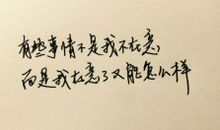 有些事情不是我不在意，
而是我在意了又能怎么样